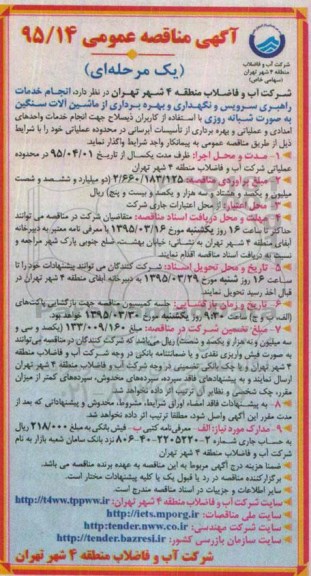 آگهی مناقصه عمومی ۹۵/۱۴
(یک مرحله‌ای)
شرکت آب و فاضلاب
منطقه ۴ شهر تهران
(سهامی خاص)
شرکت آب و فاضلاب منطقه ۴ شهر تهران در نظر دارد، انجام خدمات
راهبری سرویس و نگهداری و بهره برداری از ماشین آلات سنگین
به صورت شبانه روزی با استفاده از کاربران ذیصلاح جهت انجام خدمات واحدهای
امدادی و عملیاتی و بهره برداری از تأسیسات آبرسانی در محدوده عملیاتی خود را با شرایط
ذیل از طریق مناقصه عمومی به پیمانکار واجد شرایط واگذار نماید.
۱- مدت و محل اجرا: ظرف مدت یکسال از تاریخ ۹۵/۰۴/۰۱ در محدوده
عملیاتی شرکت آب و فاضلاب منطقه ۴ شهر تهران
۲- مبلغ برآوردی مناقصه: ۲/۶۶۰/۱۸۳/۱۲۵ (دو میلیارد و ششصد و شصت
میلیون و یکصد و هشتاد و سه هزار و یکصد و بیست و پنج) ریال
۳- محل اعتبار: از محل اعتبارات جاری شرکت
۴- مهلت و محل دریافت اسناد مناقصه: متقاضیان شرکت در مناقصه می توانند
حداکثر تا ساعت ۱۶ روز یکشنبه مورخ ۱۳۹۵/۰۳/۱۶ با معرفی نامه معتبر به دبیرخانه
آبفای منطقه ۴ شهر تهران به نشانی: خیابان بهشت، ضلع جنوبی پارک شهر مراجعه و
نسبت به دریافت اسناد مناقصه اقدام نمایند.
۵- تاریخ و محل تحویل اسناد: شرکت کنندگان می توانند پیشنهادات خود را تا
ساعت ۱۶ روز شنبه مورخ ۱۳۹۵/۰۳/۲۹ به دبیرخانه آبفای منطقه ۴ شهر تهران در
قبال اخذ رسید تحویل نمایند.
۶- تاریخ و زمان بازگشایی: جلسه کمیسیون مناقصه جهت بازگشایی پاکت‌های
(الف، ب و ج) ساعت ۹:۳۰ روز یکشنبه مورخ ۱۳۹۵/۰۳/۳۰ خواهد بود.
۷- مبلغ تضمین شرکت در مناقصه: مبلغ ۱۳۳/۰۰۹/۱۶۰ (یکصد و سی و
سه میلیون و نه هزار و یکصد و شصت) ریال می‌باشد که شرکت کنندگان در مناقصه می‌توانند
به صورت فیش واریزی نقدی و یا ضمانتنامه بانکی در وجه شرکت آب و فاضلاب منطقه
۴ شهر تهران و یا چک بانکی تضمینی در وجه شرکت آب و فاضلاب منطقه ۴ شهر تهران
ارسال نمایند و به پیشنهادهای فاقد سپرده، سپرده‌های مخدوش، سپرده‌های کمتر از میزان
مقرر، چک شخصی و نظایر آن ترتیب اثر داده نخواهد شد.
۸- به پیشنهادات فاقد امضاء اوراق شرایط، مشروط، مخدوش و پیشنهاداتی که بعد از
مدت مقرر این آگهی واصل شود، مطلقا ترتیب اثر داده نخواهد شد.
۹- مدارک مورد نیاز: الف - معرفی‌نامه کتبی ب- فیش بانکی به مبلغ ۲۱۸/۰۰۰ ریال
به حساب جاری شماره ۲-۲۲۰۵۲۲۰-۴۰-۸۰۶ نزد بانک سامان شعبه بازار به نام
شرکت آب و فاضلاب منطقه ۴ شهر تهران
ضمنا هزینه درج آگهی مربوط به این مناقصه به عهده برنده مناقصه می باشد.
برگزارکننده مناقصه در رد یا قبول یک یا کلیه پیشنهادات مختار است.
سایر اطلاعات و جزییات در اسناد مناقصه مندرج است.
سایت شرکت آب و فاضلاب منطقه ۴ شهر تهران: http://t4ww.tppww.ir
سایت ملی مناقصات: http://iets.mporg.ir
سایت شرکت مهندسی: http:tender.nww.co.ir
سایت سازمان بازرسی کشور: http://tender.bazresi.ir
شرکت آب و فاضلاب منطقه ۴ شهر تهران